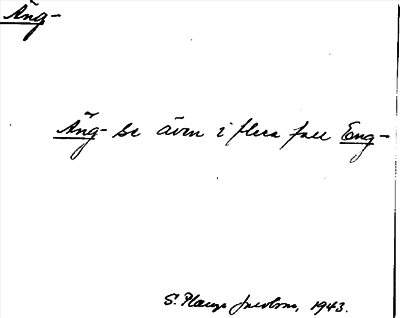 Äng-
Äng- se även i flera fall Eng-
S. Jacobson, 1943.